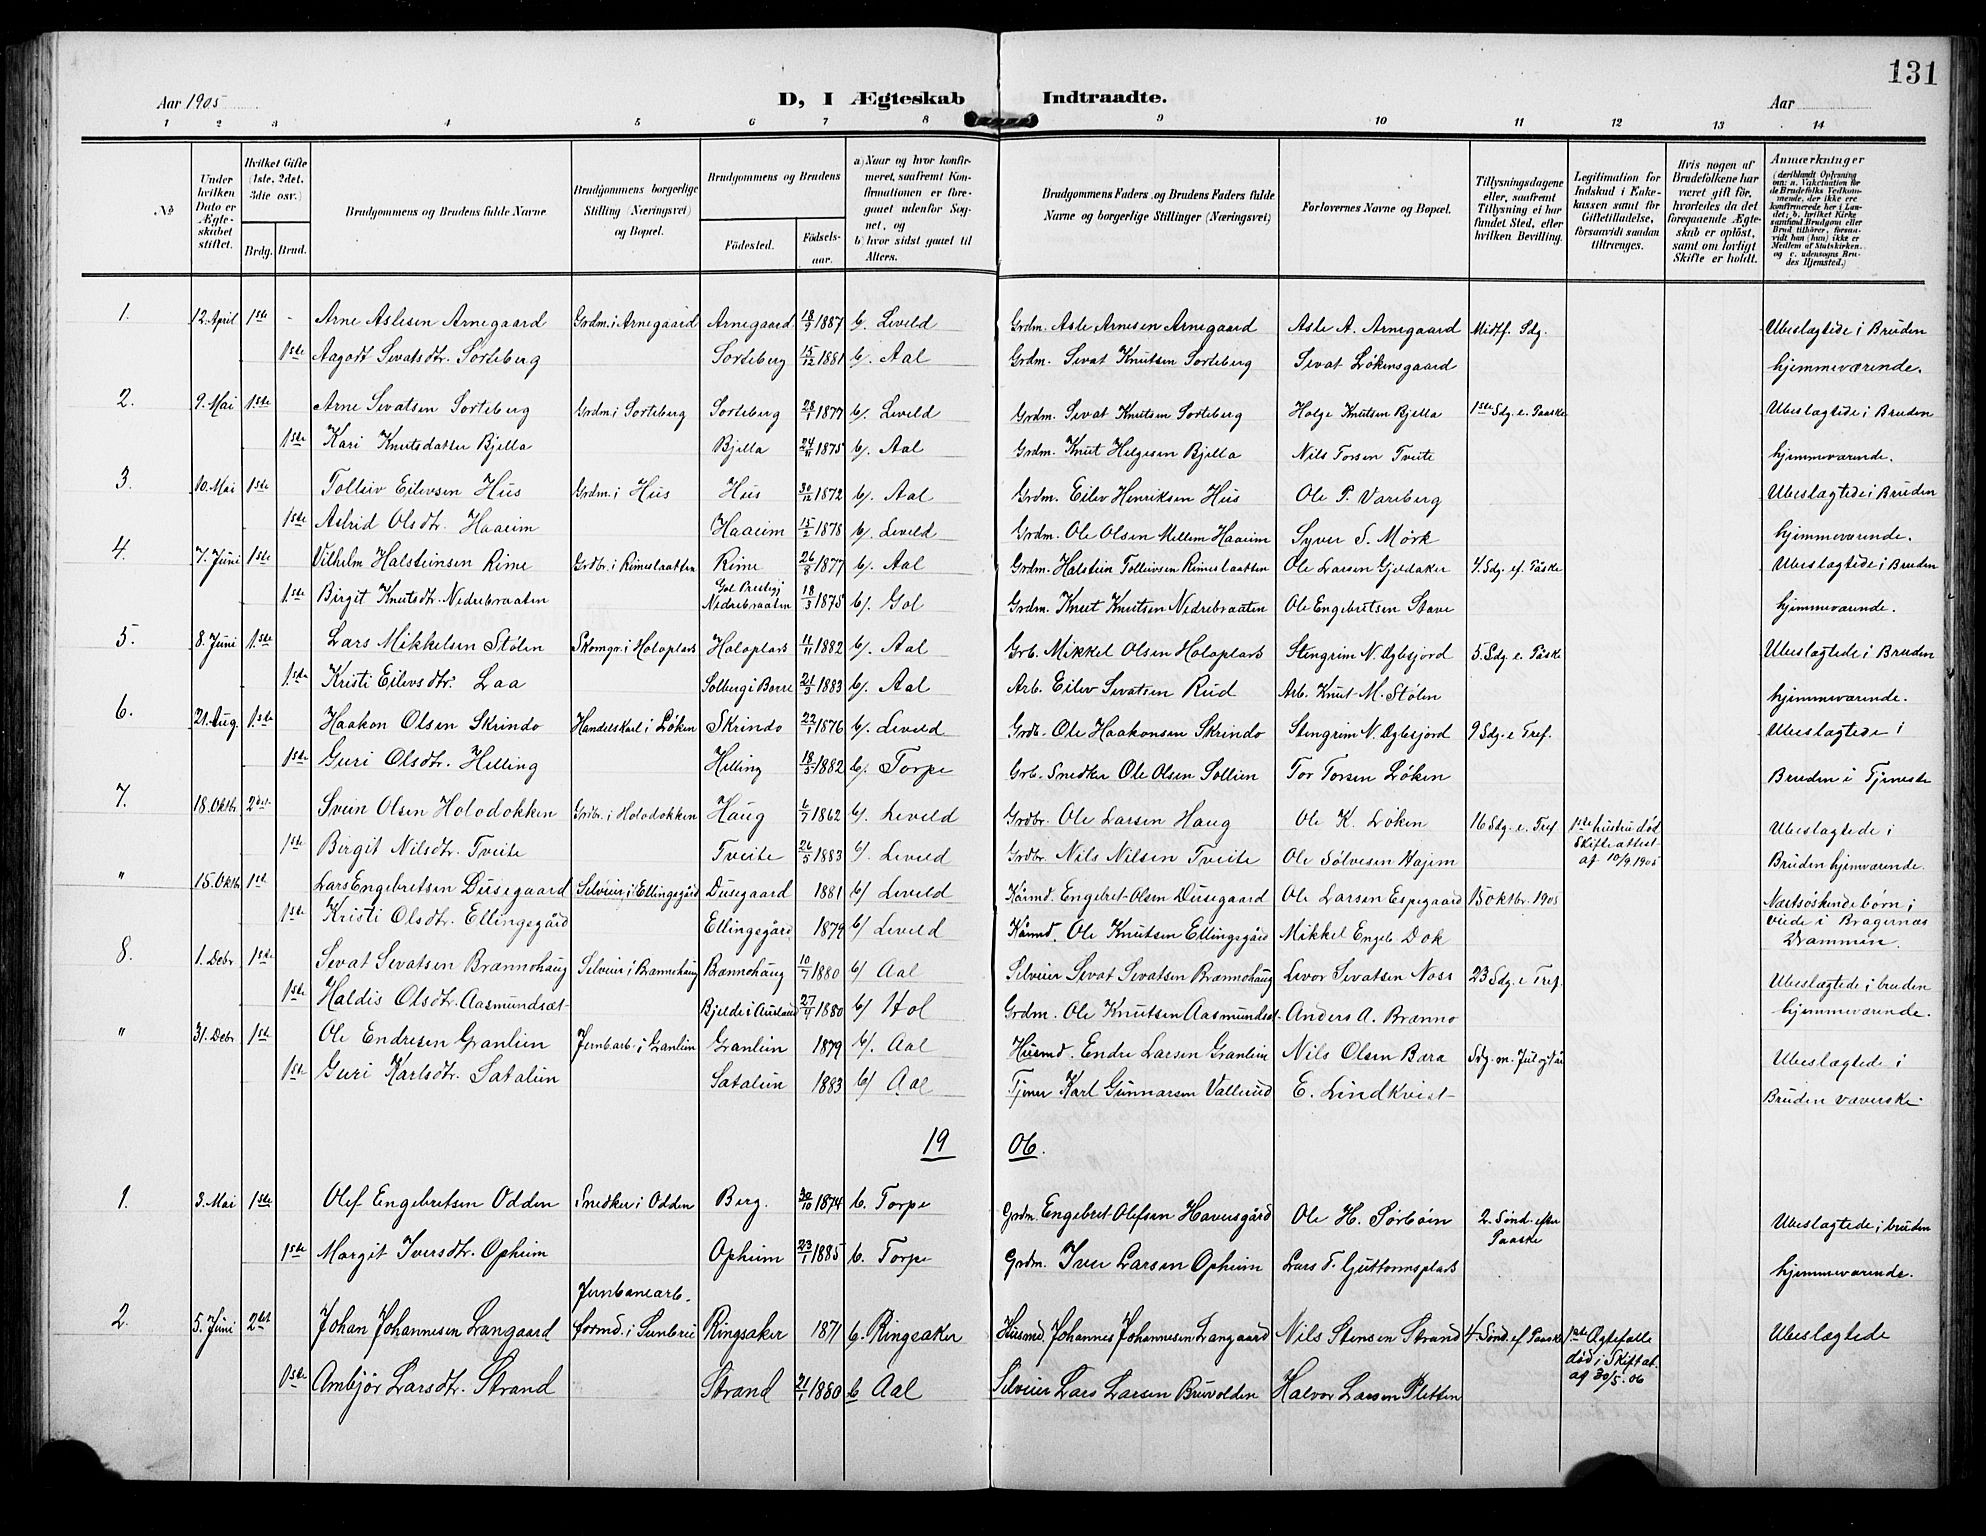 131
Aar 1905
D, I Ægteskab Indtraadte.
Aar
1 2 3 4 5 6 7 8 9 10 11 12 13 14
No
Under hvilken Dato er Ægteskabet stiftet.
Hvilket Gifte (1ste, 2det, 3die osv.)
Brdg. Brud.
Brudgommens og Brudens fulde Navne
Brudgommens borgerlige Stilling (Næringsvei) og Bopæl.
Brudgommens og Brudens
Fødested. Fødselsaar.
a) Naar og hvor konfirmeret, saafremt Konfirmationen er foregaaet udenfor Sognet, og b) hvor sidst gaaet til Alters.
Brudgommens Faders og Brudens Faders fulde Navne og borgerlige Stillinger (Næringsvei)
Forlovernes Navne og Bopæl.
Tillysningsdagene eller, saafremt Tillysning ei har fundet Sted, efter hvilken Bevilling.
Legitimation for Indskud i Enkekassen samt for Giftetilladelse, forsaavidt saadan tiltrænges.
Hvis nogen af Brudefolkene har været gift før, hvorledes da det foregaaende Ægteskab er opløst, samt om lovligt Skifte er holdt.
Anmærkninger (deriblandt Oplysning om: a. Vakcination for de Brudefolks Vedkommende, der ikke ere konfirmerede her i Landet; b. hvilket Kirkesamfund Brudgom eller Brud tilhører, forsaavidt han (hun) ikke er Medlem af Statskirken. og c. udensogns Brudes Hjemsted.)
1. 12. April 1ste - Arne Aslesen Arnegaard Grdm. i Arnegaard Arnegaard 18/9 1887 b/. Leveld Grdm. Asle Arnesen Arnegaard Asle A. Arnegaard Midtf. Sdg. Ubeslægtede i Bruden
1ste Aagodt Sevatsdtr. Sorteberg Sorteberg 15/12 1881 b/. Aal Grdm. Sevat Knutsen Sorteberg Sevat Løkensgaard hjemmeværende.
2. 9. Mai 1.ste Arne Sevatsen Sorteberg Grdm. i Sorteberg Sorteberg 28/1 1877 b/. Leveld Grdm. Sevat Knutsen Sorteberg Holge Knutsen Bjella 1ste Sdg. e. Paaske Ubeslægtede i Bruden
1ste Kari Knutsdatter Bjella Bjella 24/11 1875 b/. Aal Grdm. Knut Helgesen Bjella Nils Torsen Tveite hjemmeværende.
3. 10. Mai 1ste Tolleiv Eilevsen Hus Grdm. i Hus Hus 30/12 1872 b/. Aal Grdm. Eilev Henriksen Hus Ole P. Vareberg Ubeslægtede i Bruden
1ste Astrid Olsdtr. Haaeim Haaeim 15/2 1878 b/. Leveld Grdm. Ole Olsen Mellem Haaeim Syver S. Mørk hjemmeværende.
4. 7. Juni 1ste Vilhelm Halsteinsen Rime Grdbr. i Rimeslaatten Rime 26/8 1877 b/. Aal Grdm. Halstein Tolleivsen Rimeslaatten Ole Larsen Gjeldaker 4. Sdg. ef. Påske Ubeslægtede i Bruden
1.ste Birgit Knutsdtr. Nedrebraaten Gol Prestegj Nedrebraaten 18/3 1875 b/. Gol Grdm. Knut Knutsen Nedrebraaten Ole Engebretsen Stave hjemmeværende.
5. 8. Juni 1.ste Lars Mikkelsen Stølen Skomgr. i Holoplads Holoplads 11/11 1882 b/. Aal Grb. Mikkel Olsen Holoplads Stengrim N. Øgbesjord 5. Sdg. e. Påske Ubeslægtede i Bruden
1.ste Kristi Eilevsdtr. Laa Solberg i Borre 21/3 1883 b/. Aal Arb. Eilev Sevatsen Rud Arb. Knut M. Stølen hjemmeværende.
6. 21. Aug. 1.ste Haakon Olsen Skrindo Handelskarl i Løken Skrindo 22/1 1876 b/. Leveld Grdb. Ole Haakonsen Skrindo Stengrim N. Øgbesjord 9 Sdg. e Tref. Ubeslægtede i
1ste Guri Olsdtr. Helling Helling 18/5 1882 b/. Torpe Grb. Snedker Ole Olsen Sollien Tor Torsen Løken Bruden i Tjeneste
7. 18. Oktbr 2det Svein Olsen Holodokken Grdbr. i Holodokken Haug 6/7 1862 b/. Leveld Grdbr. Ole Larsen Haug Ole K. Løken 16 Sdg. e. Tref. 1ste hustru død Skifteattest af 10/9 1905 Ubeslægtede i
1ste Birgit Nilsdtr. Tveite Tveite 26/5 1883 b/. Leveld Grdbr. Nils Nilsen Tveite Ole Sølvesen Hajem Bruden hjemværende.
" 15. Oktbr 1ste Lars Engebretsen Dusegaard Selveier i Ellingsgård Dusegaard 1881 b/ Leveld Kårmd. Engebret Olsen Dusegaard Ole Larsen Espegaard 15 oktbr. 1905 Næstsøskendebørn;
1ste Kristi Olsdtr. Ellingsgård Ellingsgård 1879 b/ Leveld Kårmd. Ole Knutsen Ellingsgård Mikkel Engeb. Dok viede i Bragernæs Drammen.
8. 1. Debr. 1ste Sevat Sevatsen Brænnohaug Selveier i Brænnohaug Brænnohaug 10/7 1880 b/ Aal Selveier Sevat Sevatsen Brænnohaug Levor Sevatsen Noss 23 Sdg. e Tref. Ubeslægtede i bruden
1ste Haldis Olsdtr. Aasmundsæt Bjelde i Aurland 27/4 1880 b/ Hol Grdm. Ole Knutsen Aasmundsæt Anders A. Brænno hjemmeværende.
" 31. Debr. 1ste Ole Endresen Granlien Jernb.arb. i Granlien Granlien 1879 b/. Aal Husmd. Endre Larsen Granlien Nils Olsen Bæra Sdg. m. Jul og Når Ubeslægtede i
1ste Guri Karlsdtr. Satalien Satalien 1883 b/ Aal Tjener Karl Gunnarsen Vallerud E. Lindkvist Bruden væverske
1906.
1. 3. Mai 1ste Olef Engebretsen Odden Snedker i Odden Berg. 30/10 1874 b. Torpe Grdm. Engebret Olefsen Haversgård Ole H. Sørbøen 2. Sønd. efter Paaske Ubeslægtede, bruden
1ste Margit Iversdtr. Opheim Opheim 23/1 1885 b. Torpe Grdm. Iver Larsen Opheim Lars T. Guttormsplads hjemmeværende.
2. 5. Juni 2det Johan Johannesen Langaard Jernbanearb. formd. i Sunbrei Ringsaker 1871 b. Ringsaker Husmd. Johannes Johannesen Langaard Nils Stensen Strand 4. Sønd. ef Paaske 1ste Ægtefælle død; Skifteat. ag 30/5. 06 Ubeslægtede
1ste Ambjør Larsdtr. Strand Strand 2/1 1880 b Aal Selveier Lars Larsen Bruvolden Halvor Larsen Pletten